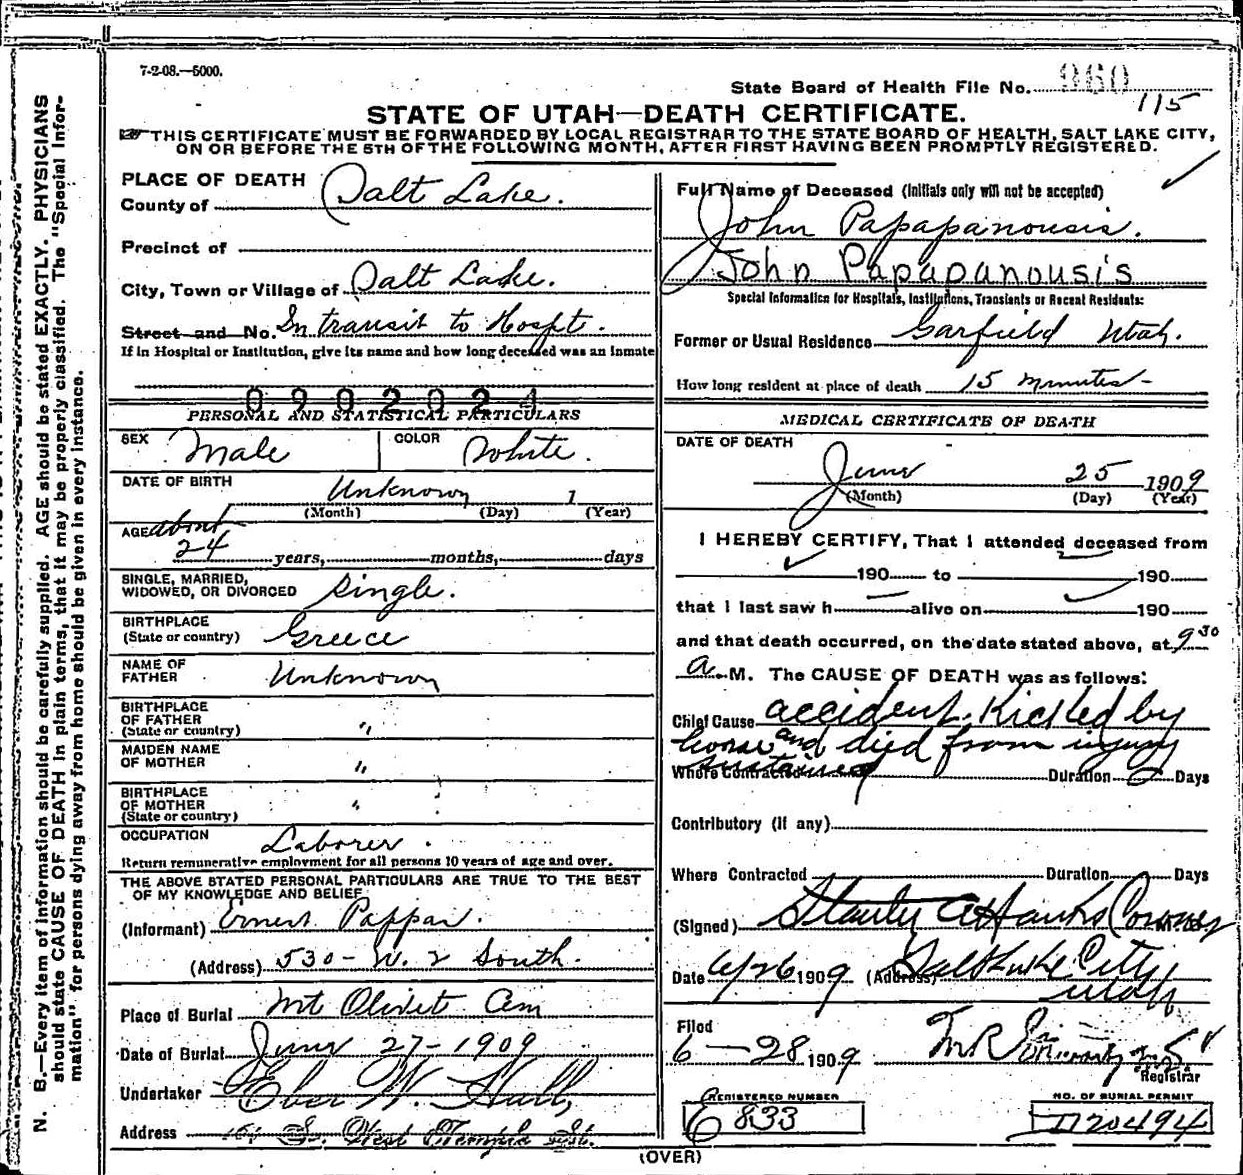 7-2-08.—5000.
State Board of Health File No. 960
115
STATE OF UTAH—DEATH CERTIFICATE.
THIS CERTIFICATE MUST BE FORWARDED BY LOCAL REGISTRAR TO THE STATE BOARD OF HEALTH, SALT LAKE CITY,
ON OR BEFORE THE 5TH OF THE FOLLOWING MONTH, AFTER FIRST HAVING BEEN PROMPTLY REGISTERED.
N. B.—Every item of information should be carefully supplied. AGE should be stated EXACTLY. PHYSICIANS
should state CAUSE OF DEATH in plain terms, that it may be properly classified. The "Special Infor-
mation" for persons dying away from home should be given in every instance.
PLACE OF DEATH
County of Salt Lake.
Precinct of
City, Town or Village of Salt Lake.
Street and No. In transit to Hospt.
If in Hospital or Institution, give its name and how long deceased was an inmate
0902024
PERSONAL AND STATISTICAL PARTICULARS
SEX Male COLOR White.
DATE OF BIRTH Unknown 1
(Month) (Day) (Year)
AGE about
24 years, months, days
SINGLE, MARRIED,
WIDOWED, OR DIVORCED Single.
BIRTHPLACE
(State or country) Greece
NAME OF
FATHER Unknown
BIRTHPLACE
OF FATHER
(State or country) "
MAIDEN NAME
OF MOTHER "
BIRTHPLACE
OF MOTHER
(State or country) "
OCCUPATION Laborer.
Return remunerative employment for all persons 10 years of age and over.
THE ABOVE STATED PERSONAL PARTICULARS ARE TRUE TO THE BEST
OF MY KNOWLEDGE AND BELIEF
(Informant) Ernest Pappas.
(Address) 530- W. 2 South.
Place of Burial Mt Olivet Cem
Date of Burial June 27-1909
Undertaker Eber W. Hall,
Address S. West Temple St.
Full Name of Deceased (Initials only will not be accepted)
John Papapanousis.
John Papapanousis
Special Information for Hospitals, Institutions, Transients or Recent Residents:
Former or Usual Residence Garfield Utah.
How long resident at place of death 15 minutes-
MEDICAL CERTIFICATE OF DEATH
DATE OF DEATH
June 25 1909
(Month) (Day) (Year)
I HEREBY CERTIFY, That I attended deceased from
190 to 190
that I last saw h alive on 190
and that death occurred, on the date stated above, at 9 30
a. M. The CAUSE OF DEATH was as follows:
Chief Cause accident. Kicked by
horse and died from injury
sustained
Where Contracted Duration Days
Contributory (if any)
Where Contracted Duration Days
(Signed) Stanley A Hanks Coroner
Date 6/26 1909 (Address) Salt Lake City
Utah
Filed
6-28 1909
Registrar
REGISTERED NUMBER
E 833
NO. OF BURIAL PERMIT
D 20494
(OVER)